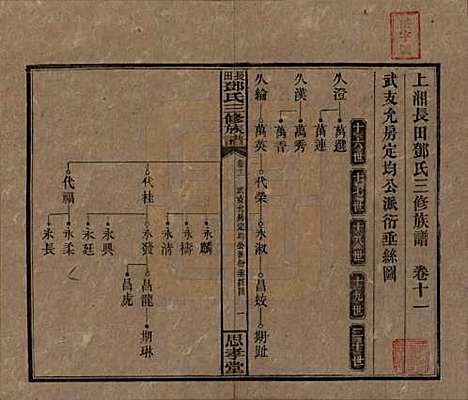 上湘長田鄧氏三修族譜 卷十一
武支允房定均公派衍垂絲圖
十六世 十七世 十八世 十九世 二十世
久澄 萬選
萬連
久漢 萬秀
萬音
久綸 萬英 代榮 永淑 昌蛟 期趾
長田鄧氏三修族譜 卷十一 武支允房定均公派衍垂絲圖 一 思孝堂
永麟
永檮
代桂 永清
永發 昌龍 期琳
昌虎
永興
永廷
代福 永柔
永長